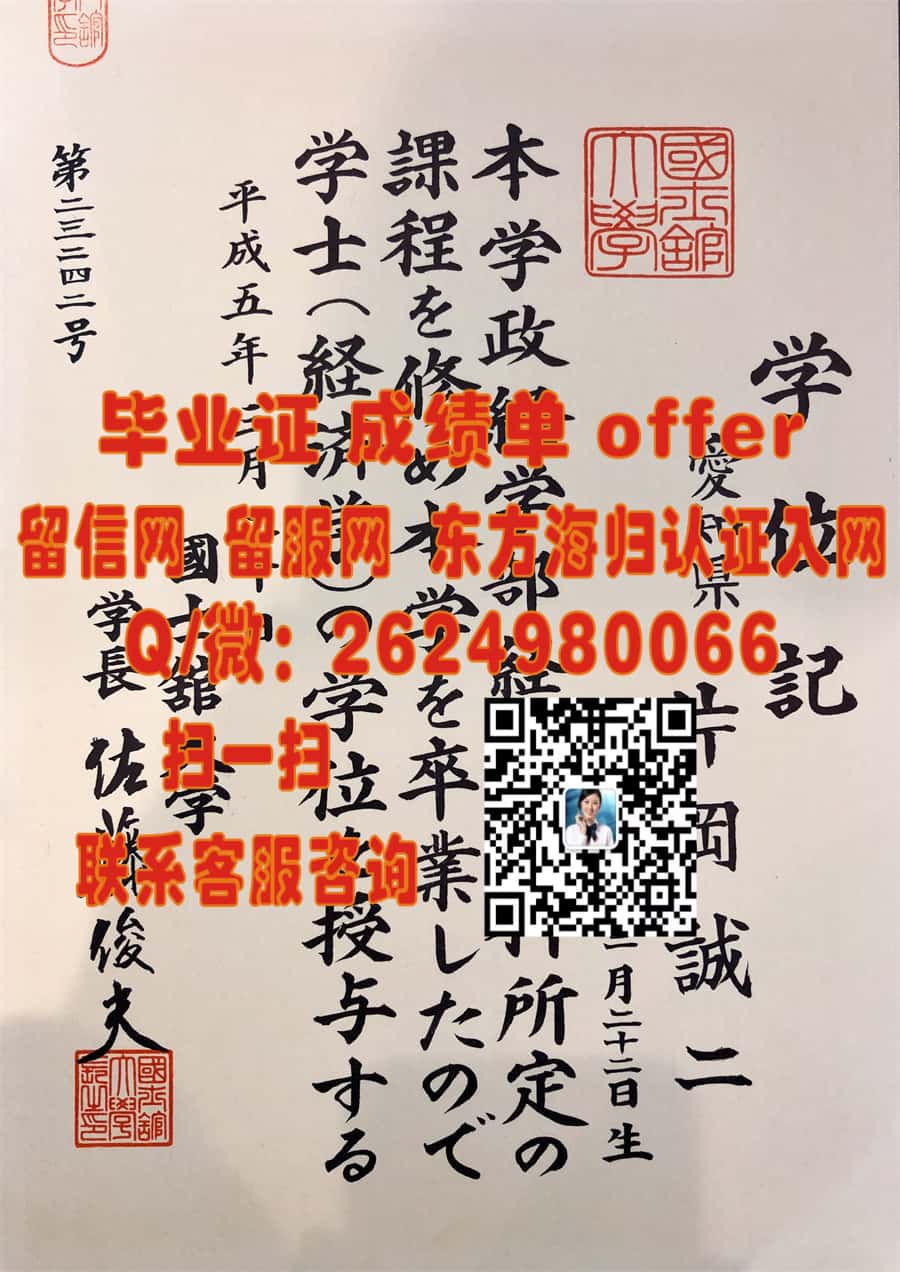 国士舘大學
学位記
愛知県 片岡誠二
月二十二日生
本学政経学部経 所定の
課程を修め本学を卒業したので
学士(経済学)の学位を授与する
平成五年三月
國士舘大学
学長 佐藤俊夫
第二三二四二号
毕业证 成绩单 offer
留信网 留服网 东方海归认证入网
Q/微: 2624980066
扫一扫
联系客服咨询